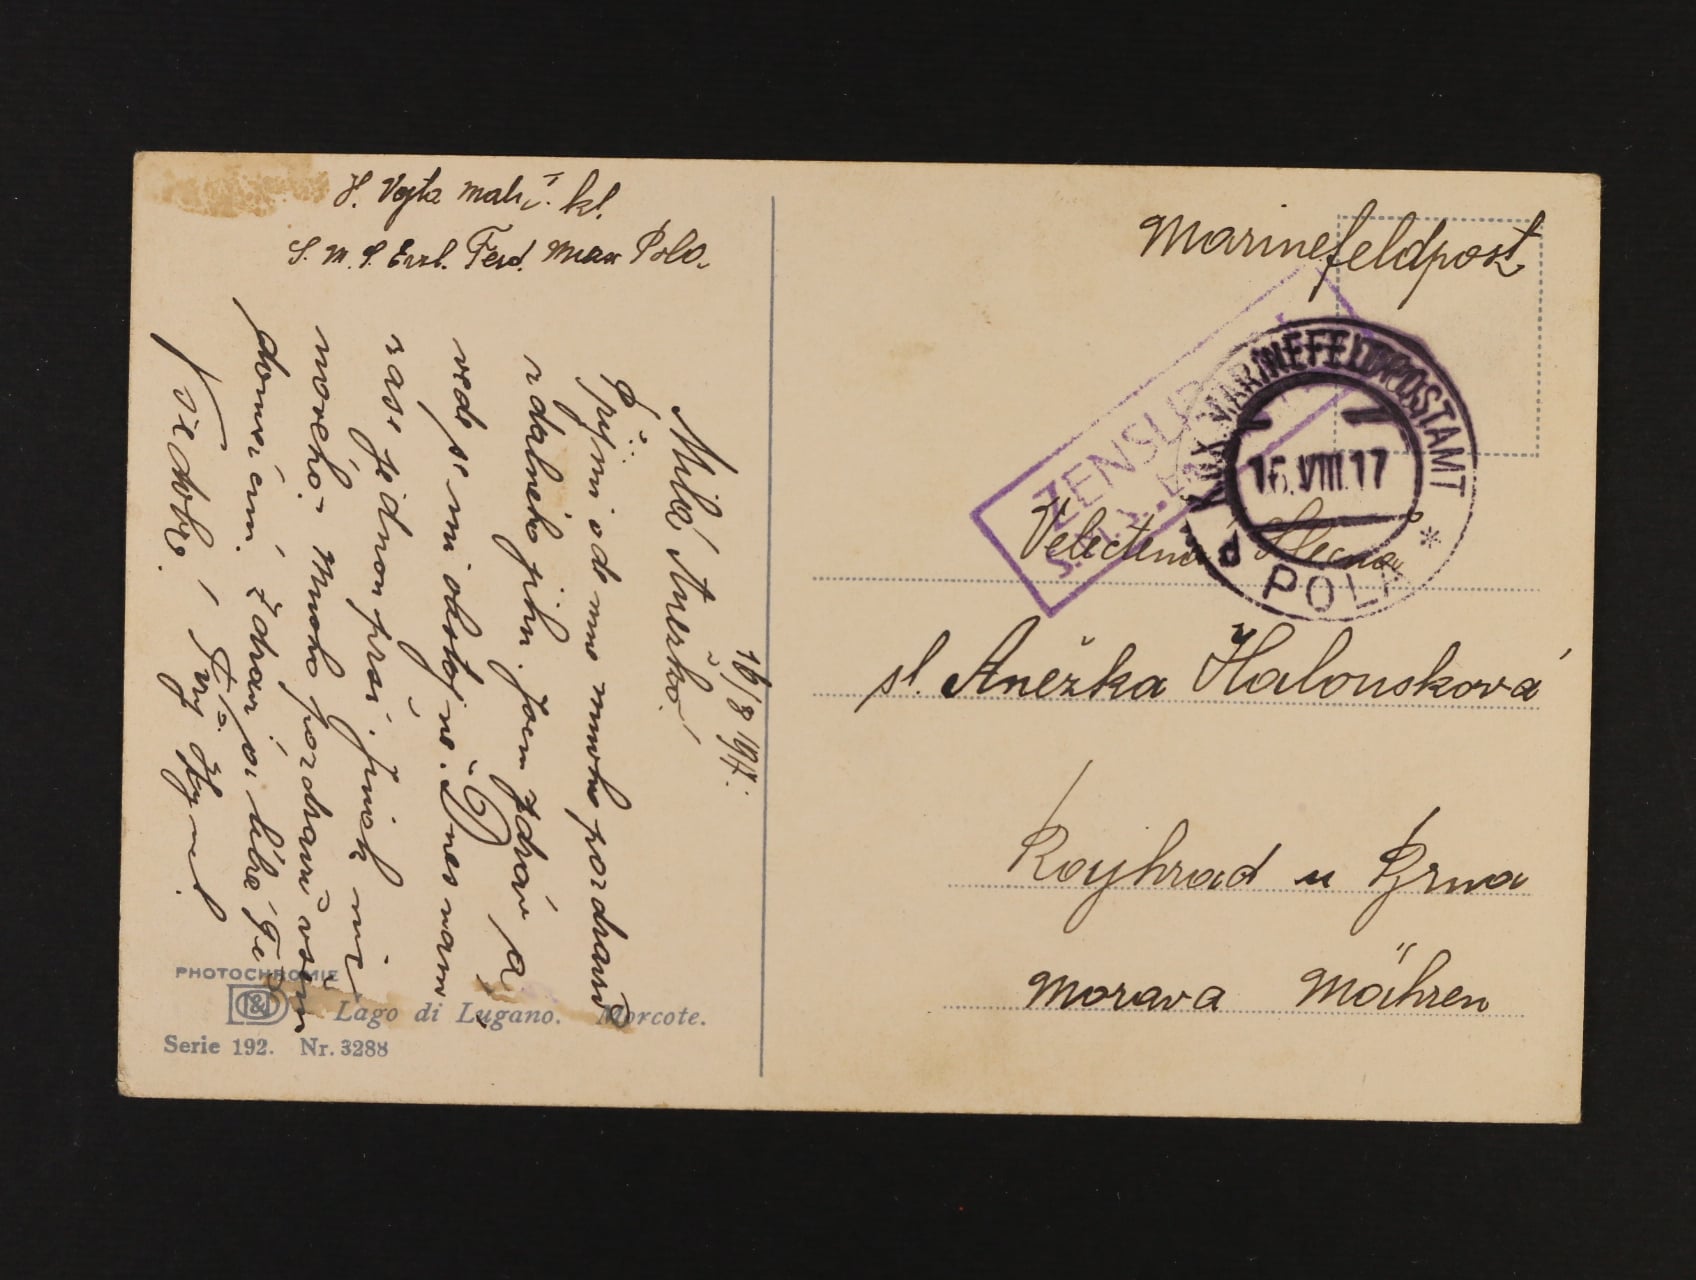 Vojta
S. M. S. Erzh. Ferd. Max Pola.
16/8 1917.
Milá Anežko!
Přijmi ode mne mnoho pozdravů
z dalného jihu. Jsem zdráv a
vede se mi obstojně. Dnes nám
zase jednou prší. Jinak nic
nového. Mnoho pozdravů všem
domácím. Zdraví a líbá Tě
Vždy Tvůj
PHOTOCHROMIE
Lago di Lugano. Morcote.
Serie 192. Nr. 3288
Marinefeldpost
ZENSUR
S.M.S.
K.u.K. MARINEFELDPOSTAMT
16.VIII.17
d POLA *
Velectěná Slečna
sl. Anežka Halousková
Rajhrad u Brna
Morava Mähren